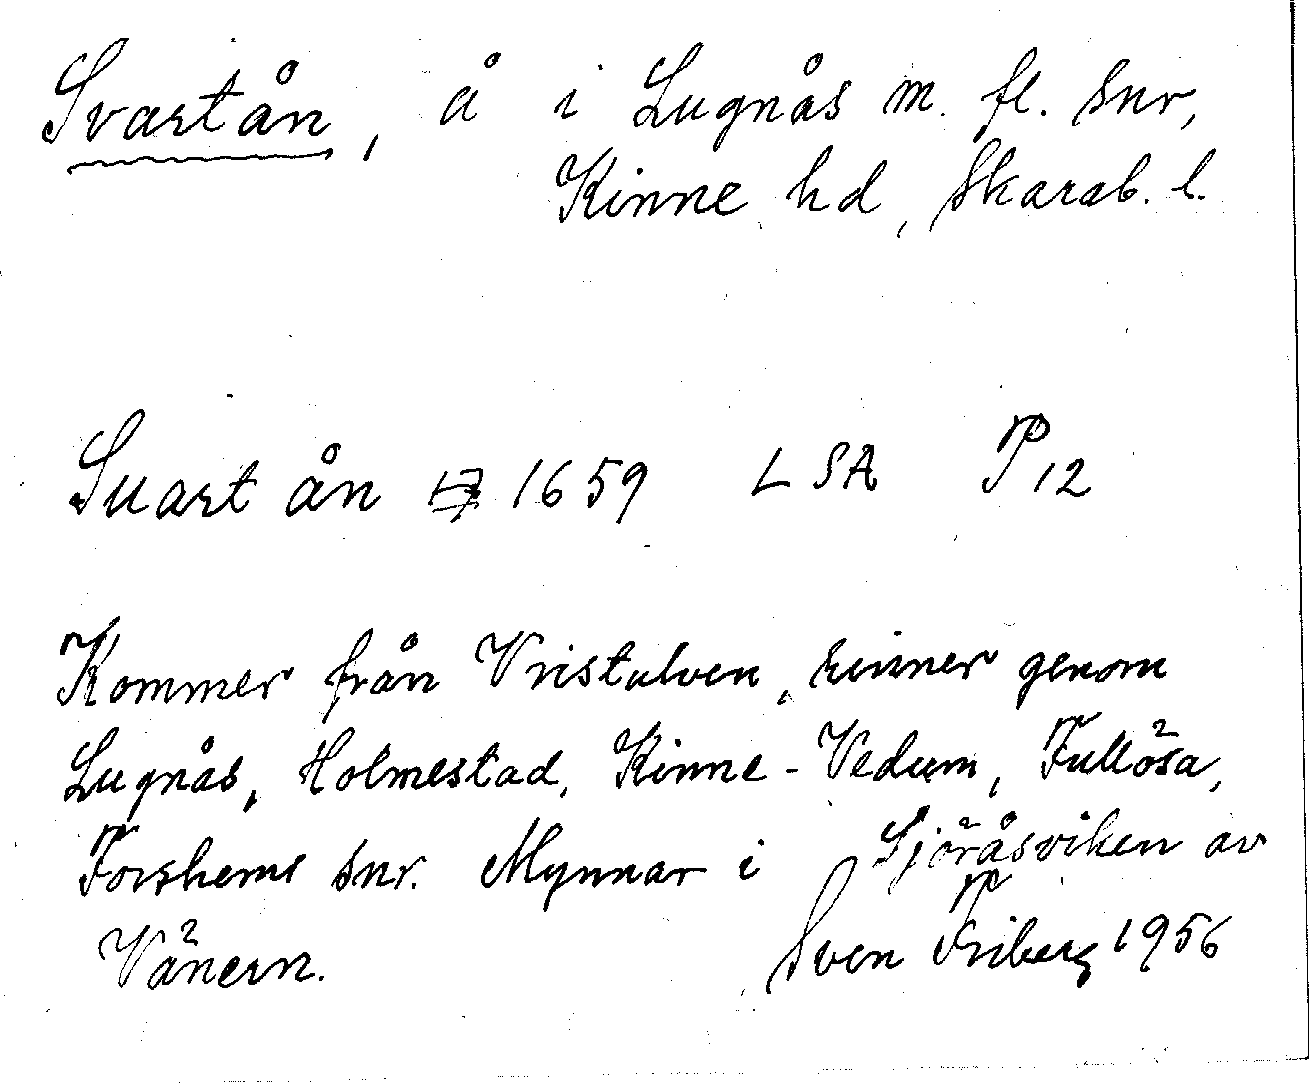 Svartån, å i Lugnås m. fl. snr,
Kinne hd, Skarab. l.
Suart ån 1659 LSA P 12
Kommer från Vristulven, rinner genom
Lugnås, Holmestad, Kinne-Vedum, Fullösa,
Forshems snr. Mynnar i Sjöråsviken av
Vänern. Sven Friberg 1956